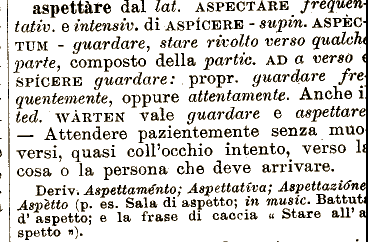 aspettàre dal lat. ASPECTÀRE frequen-
tativ. e intensiv. di ASPÍCERE - supin. ASPÈC-
TUM - guardare, stare rivolto verso qualche
parte, composto della partic. AD a verso e
SPÍCERE guardare: propr. guardare fre-
quentemente, oppure attentamente. Anche il
ted. WÀRTEN vale guardare e aspettare
— Attendere pazientemente senza muo-
versi, quasi coll'occhio intento, verso la
cosa o la persona che deve arrivare.
Deriv. Aspettaménto; Aspettatíva; Aspettazióne
Aspètto (p. es. Sala di aspetto; in music. Battuta
d'aspetto; e la frase di caccia « Stare all'a
spetto »).